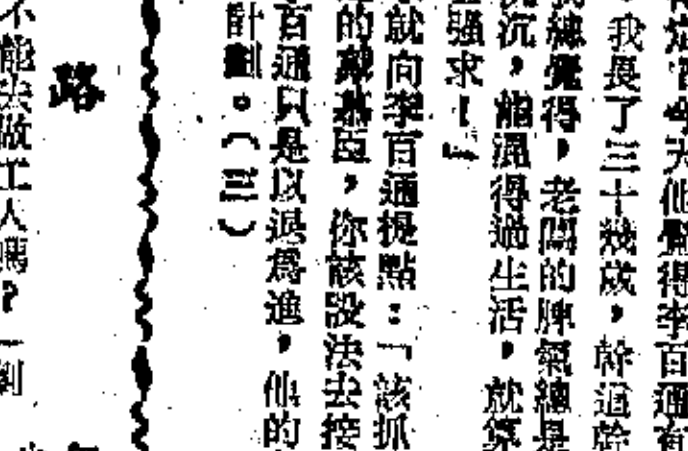 今天他覺得李百通有
我長了三十幾歲，幹過幹
總覺得，老闆的脾氣總是
沉，能混得過生活，就算
強求！』
就向李百通提點：「該抓
的戴慕臣，你該設法去接
百通只是以退爲進，他的
計劃。（三）
路
不能去做工人嗎？一到